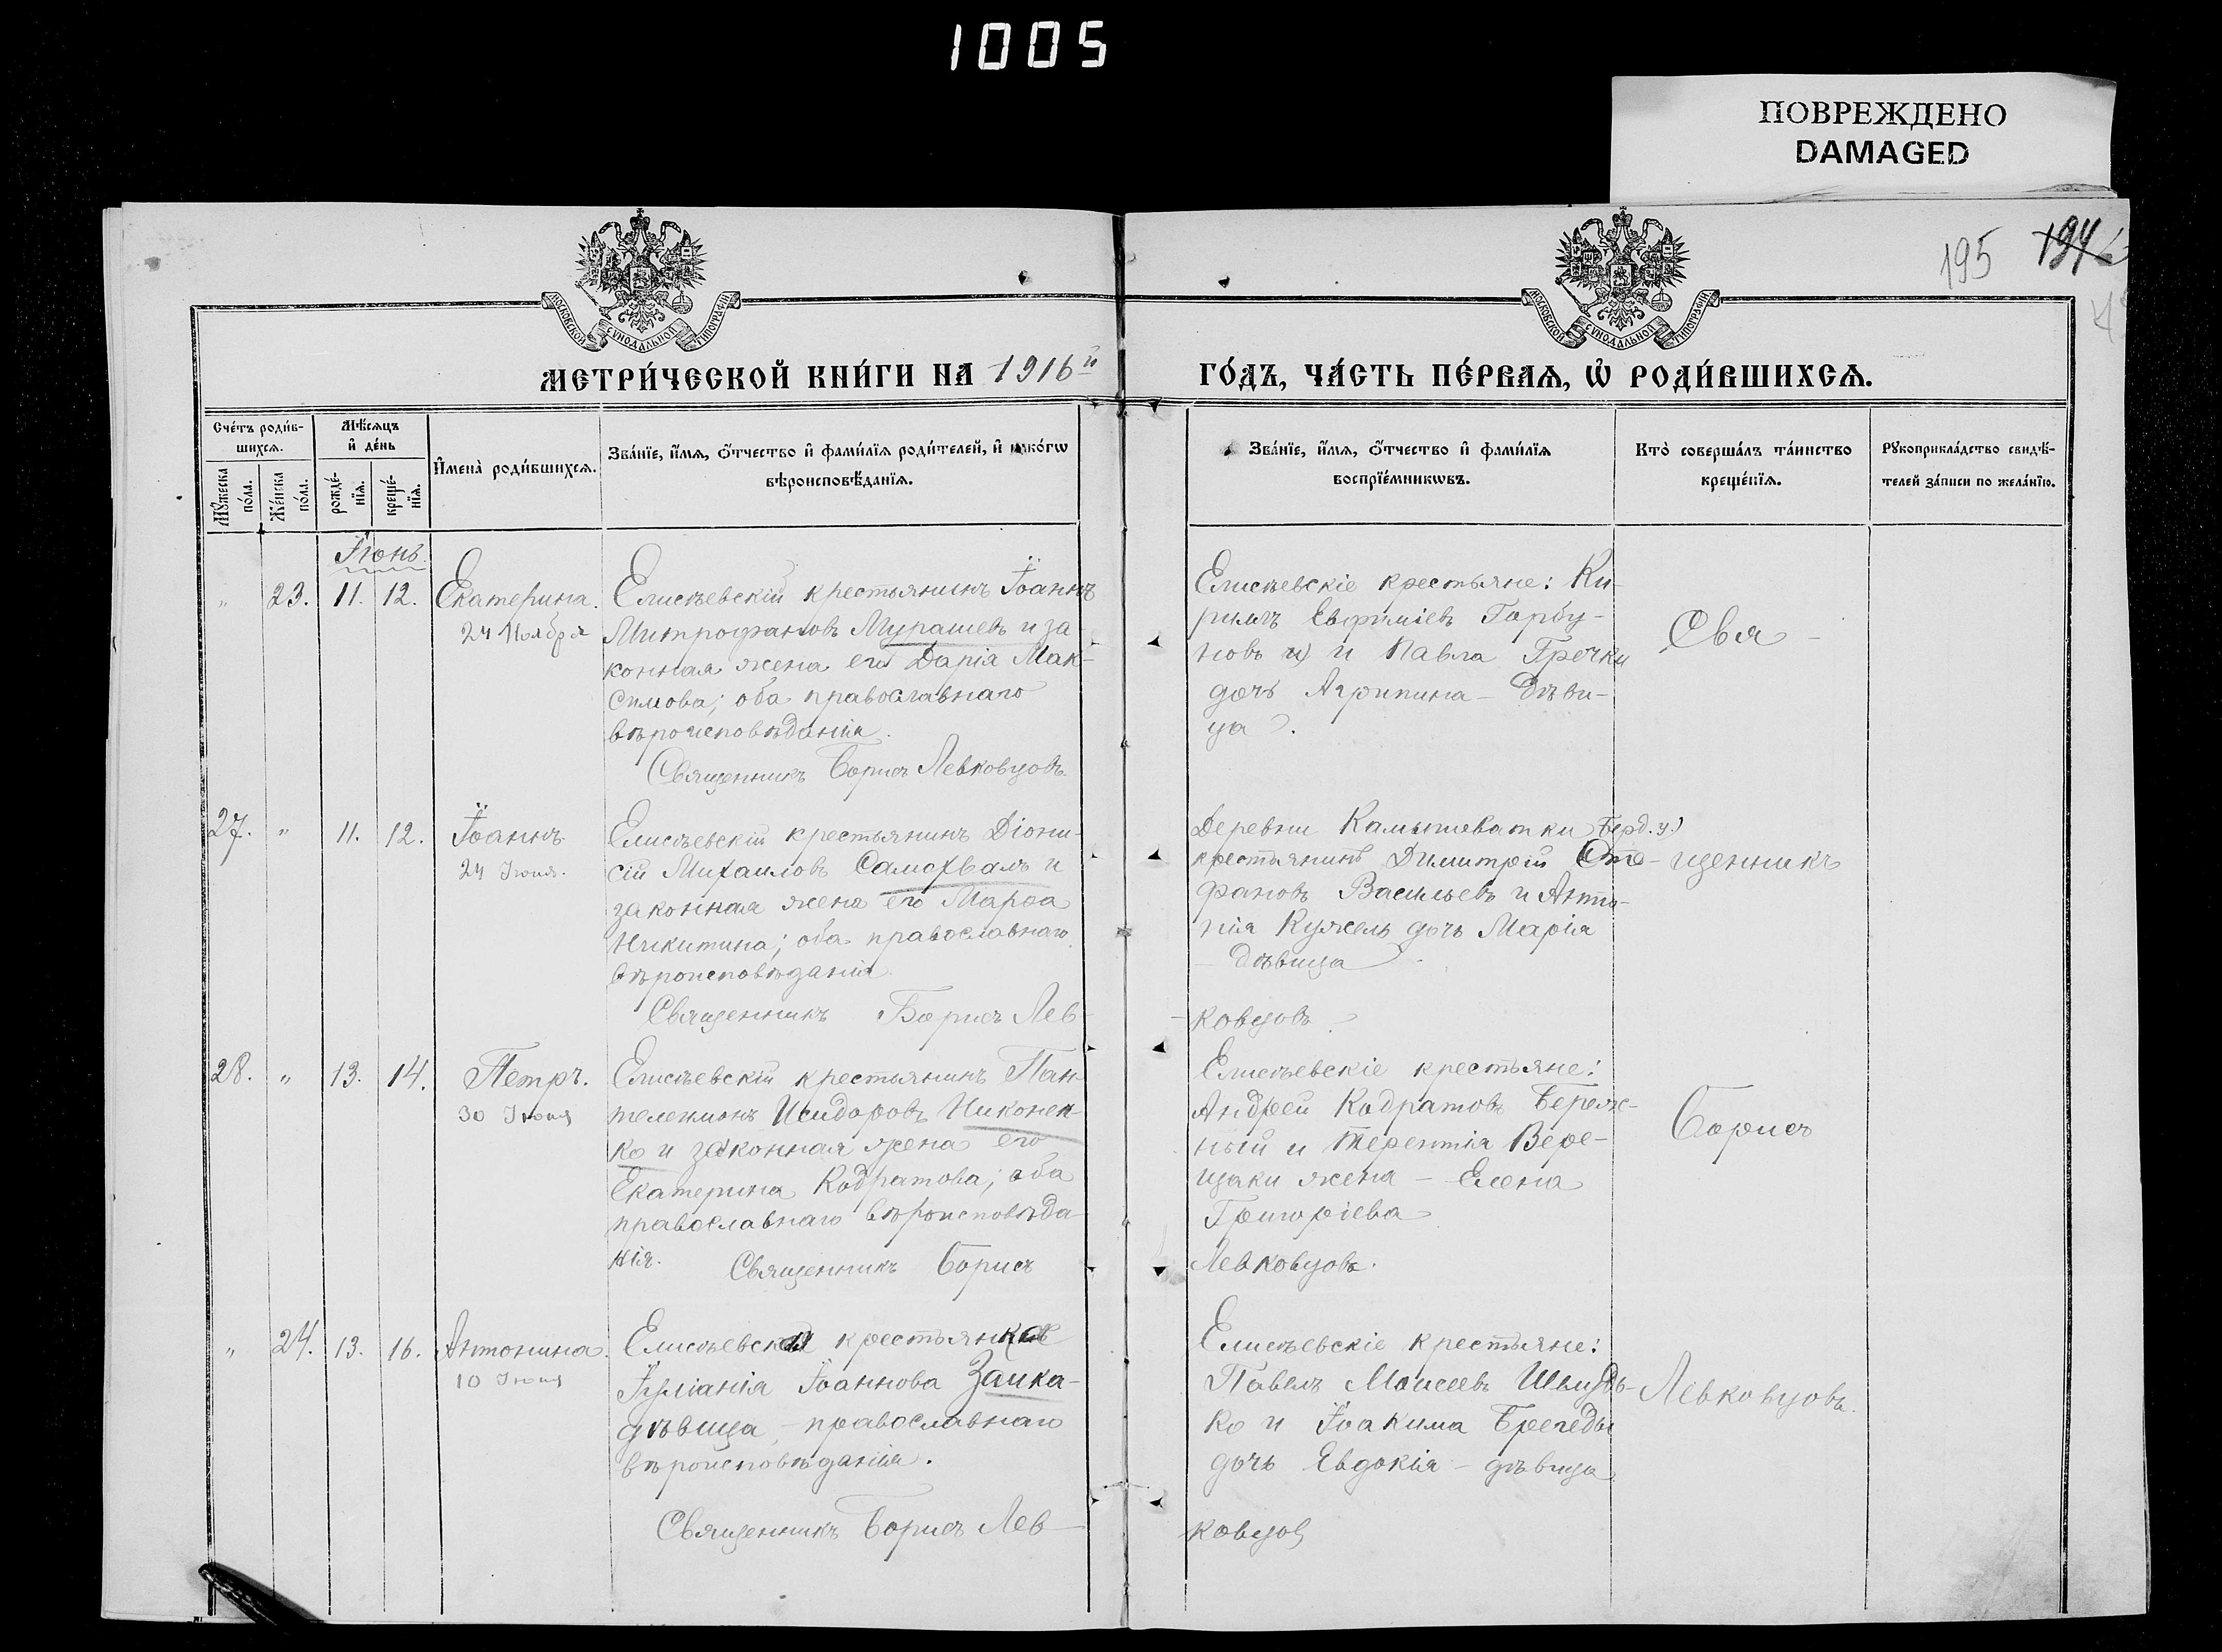 1005
ПОВРЕЖДЕНО
DAMAGED
195 194
МОСКОВСКОЙ СѴНОДАЛЬНОЙ ТИПОГРАФІИ
МОСКОВСКОЙ СѴНОДАЛЬНОЙ ТИПОГРАФІИ
МЕТРИ́ЧЕСКОЙ КНИ́ГИ НА 1916й ГО́ДЪ, ЧА́СТЬ ПЕ́РВАѦ, Ѡ҆ РОДИ́ВШИХСѦ.
Сче́тъ роди́в-
шихсѧ.
Мꙋ́жеска
по́ла.
Же́нска
по́ла.
Мѣ́сѧцъ
и҆ де́нь
рожде́-
нїѧ.
креще́-
нїѧ.
И҆мена̀ роди́вшихсѧ.
Зва́нїе, и҆́мѧ, ѻ҆́тчество и҆ фами́лїѧ роди́телей, и҆ како́гѡ
вѣроисповѣ́данїѧ.
Зва́нїе, и҆́мѧ, ѻ҆́тчество и҆ фами́лїѧ
воспрїе́мникѡвъ.
Кто̀ соверша́лъ та́инство
креще́нїѧ.
Рꙋкоприкла́дство свидѣ́-
телей за́писи по жела́нїю.
Іюнь
" 23. 11. 12. Екатерина.
24 Ноября
Елисѣевскій крестьянинъ Іоаннъ
Митрофановъ Мурашевъ и за
конная жена его Дарія Мак-
симова; оба православнаго
вѣроисповѣданія.
Священникъ Борисъ Левковцовъ.
Елисѣевскіе крестьяне: Ки-
риллъ Евфиміевъ Горбу-
новъ и Павла Гречки
дочь Агрипина - дѣви-
ца.
Свя-
27. " 11. 12. Іоаннъ
24 Іюня.
Елисѣевскій крестьянинъ Діони-
сій Михаиловъ Самохвалъ и
законная жена его Марѳа
Никитина; оба православнаго
вѣроисповѣданія.
Священникъ Борисъ Лев-
Деревни Камышеватки Берд. у.)
крестьянинъ Димитрій Сте-
фановъ Васильевъ и Анто-
нія Кужель дочь Марія
- дѣвица
-ковцовъ.
щенникъ
28. " 13. 14. Петръ.
30 Іюня
Елисѣевскій крестьянинъ Пан-
телеимонъ Исидоровъ Никонен-
ко и законная жена его
Екатерина Кодратова; оба
православнаго вѣроисповѣда-
нія. Священникъ Борисъ
Елисѣевскіе крестьяне:
Андрей Кодратовъ Береж-
ный и Терентія Вере-
щаки жена - Елена
Григоріева
Левковцовъ.
Борисъ
" 24. 13. 16. Антонина.
10 Іюня
Елисѣевская крестьянка
Іуліанія Іоаннова Заика-
дѣвица, - православнаго
вѣроисповѣданія.
Священникъ Борисъ Лев-
Елисѣевскіе крестьяне:
Павелъ Моисеевъ Швидь-
ко и Іоакима Брегеды
дочь Евдокія - дѣвица
ковцовъ
Левковцовъ.